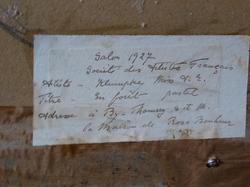 Salon 1927
Société des Artistes Français
Artiste - Klumpke Miss A. E.
Titre - En forêt pastel
Adresse à By - Thomery S. et M.
la Maison de Rosa Bonheur